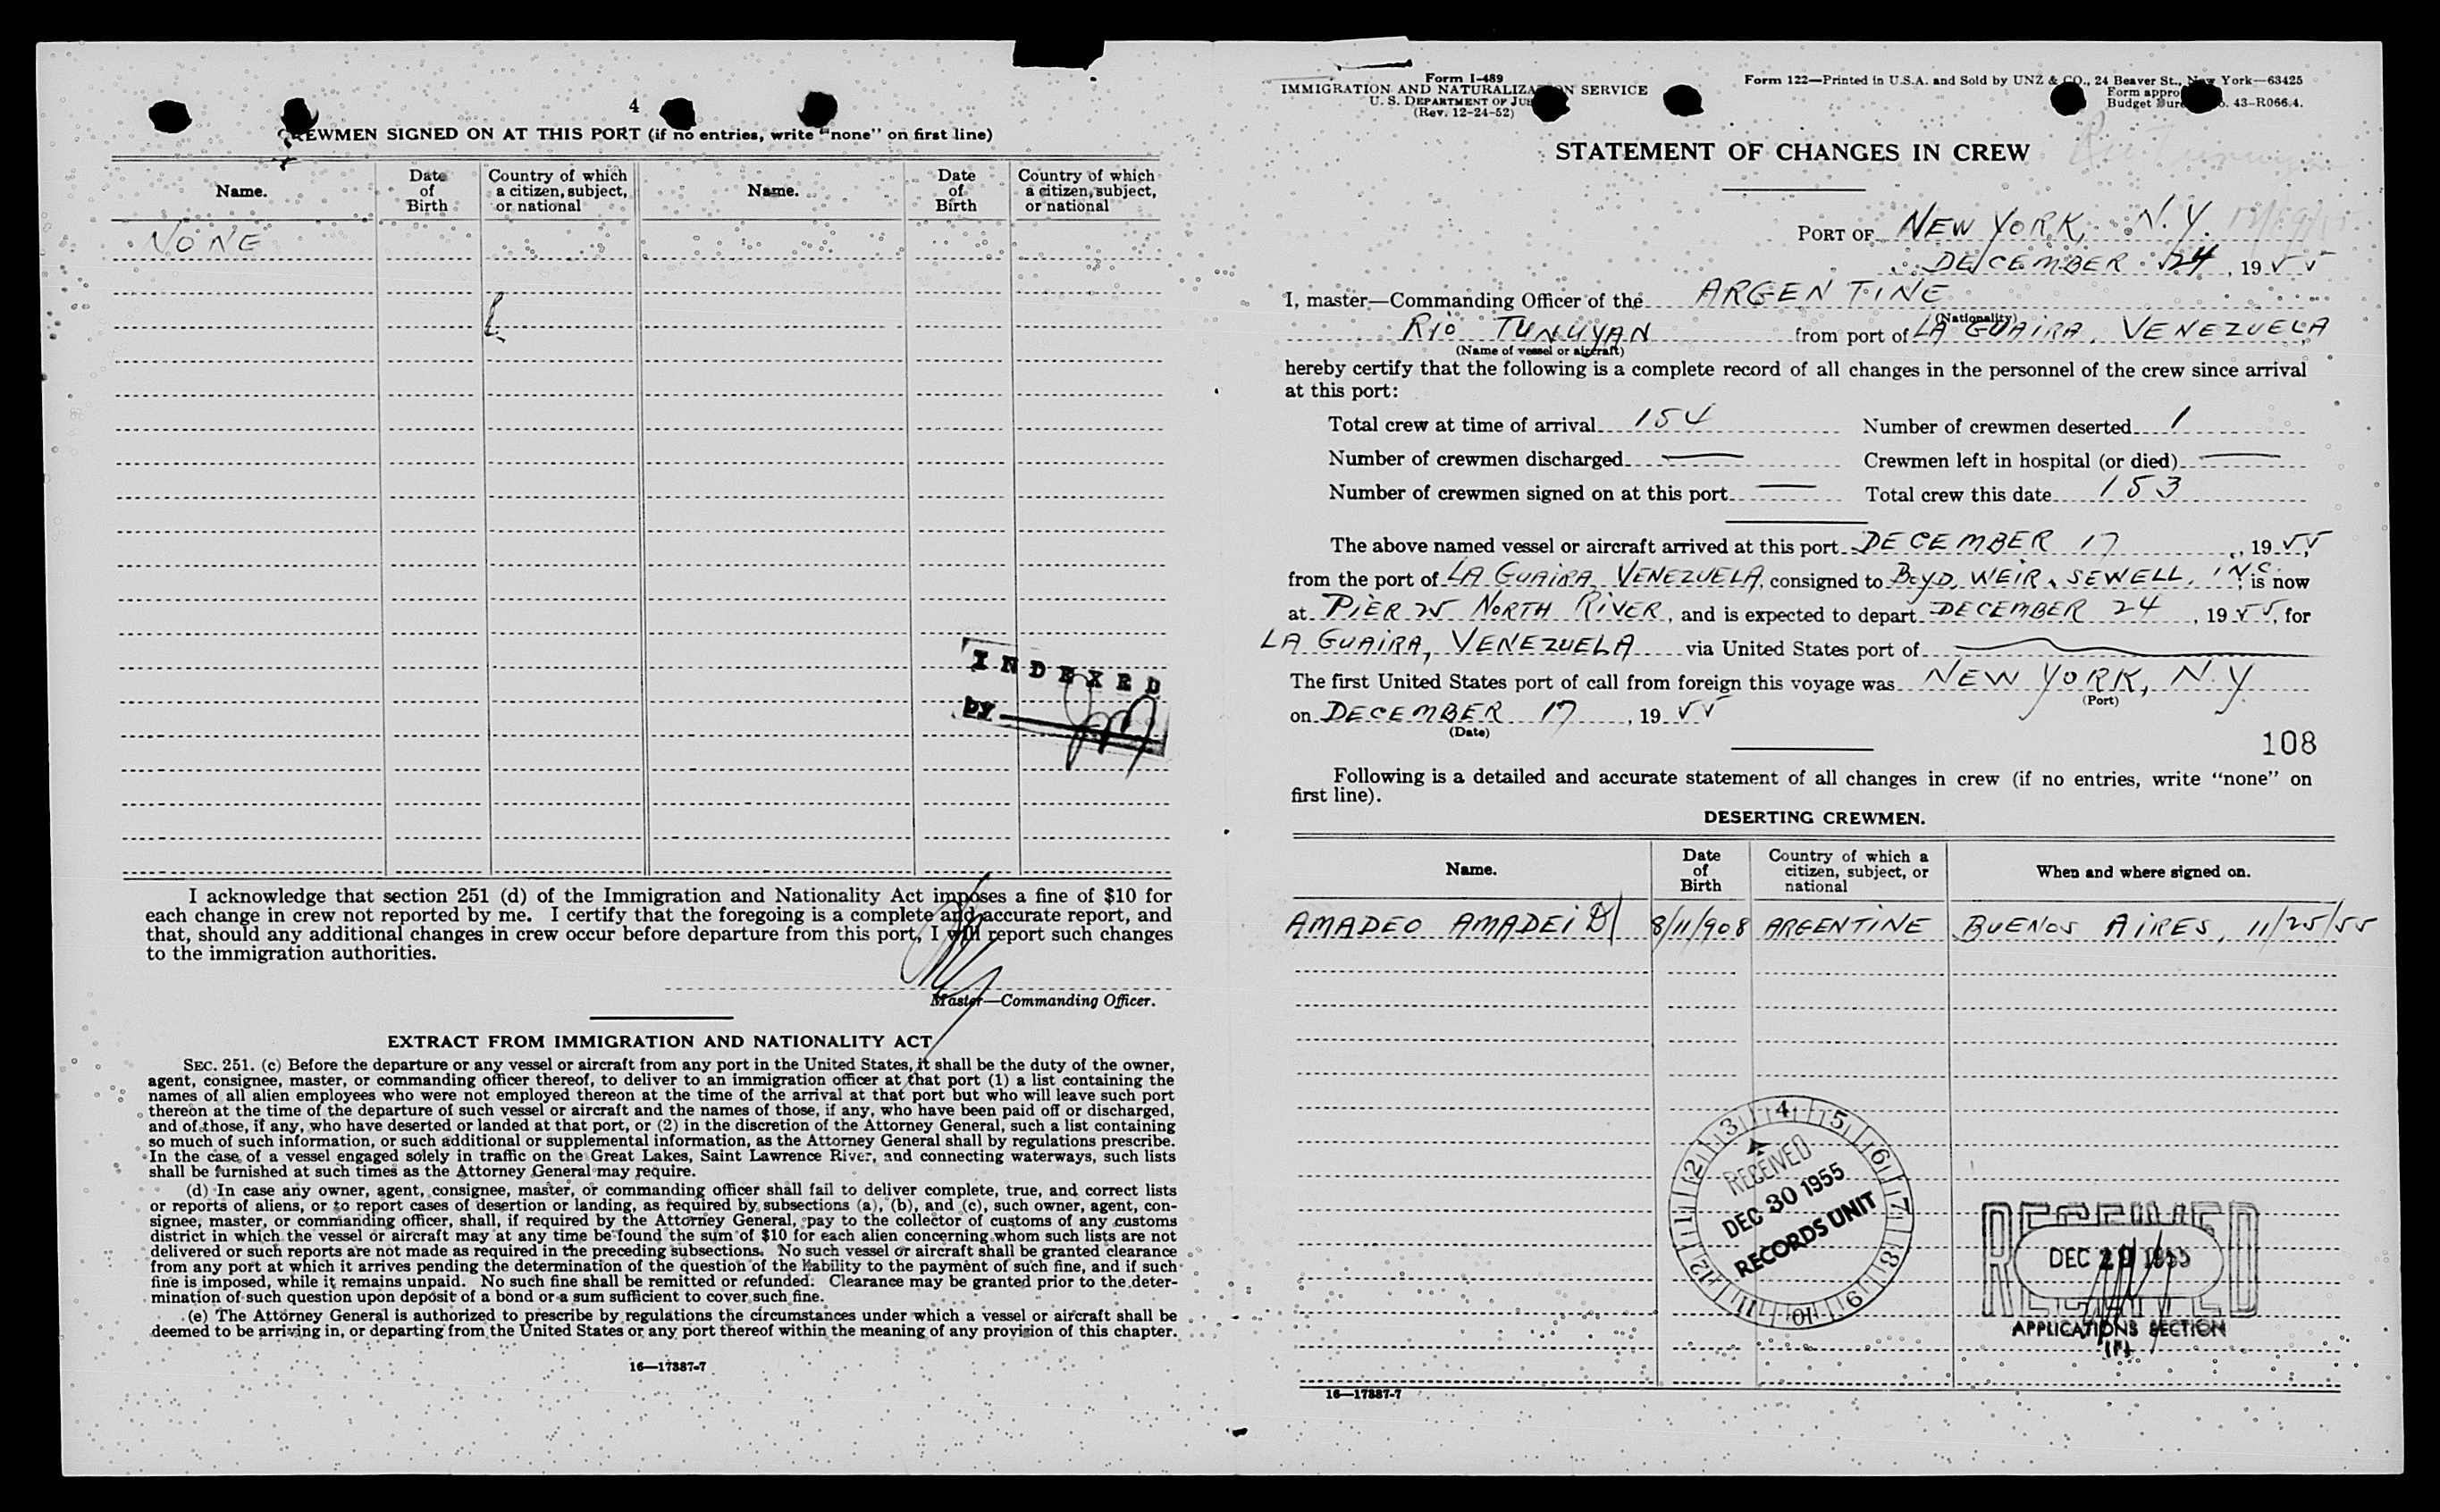 4
CREWMEN SIGNED ON AT THIS PORT (if no entries, write "none" on first line)
Name. Date of Birth Country of which a citizen, subject, or national Name. Date of Birth Country of which a citizen, subject, or national
NONE
INDEXED
by
I acknowledge that section 251 (d) of the Immigration and Nationality Act imposes a fine of $10 for
each change in crew not reported by me. I certify that the foregoing is a complete and accurate report, and
that, should any additional changes in crew occur before departure from this port, I will report such changes
to the immigration authorities.
Master—Commanding Officer.
EXTRACT FROM IMMIGRATION AND NATIONALITY ACT
SEC. 251. (c) Before the departure or any vessel or aircraft from any port in the United States, it shall be the duty of the owner,
agent, consignee, master, or commanding officer thereof, to deliver to an immigration officer at that port (1) a list containing the
names of all alien employees who were not employed thereon at the time of the arrival at that port but who will leave such port
thereon at the time of the departure of such vessel or aircraft and the names of those, if any, who have been paid off or discharged,
and of those, if any, who have deserted or landed at that port, or (2) in the discretion of the Attorney General, such a list containing
so much of such information, or such additional or supplemental information, as the Attorney General shall by regulations prescribe.
In the case of a vessel engaged solely in traffic on the Great Lakes, Saint Lawrence River, and connecting waterways, such lists
shall be furnished at such times as the Attorney General may require.
(d) In case any owner, agent, consignee, master, or commanding officer shall fail to deliver complete, true, and correct lists
or reports of aliens, or to report cases of desertion or landing, as required by subsections (a), (b), and (c), such owner, agent, con-
signee, master, or commanding officer, shall, if required by the Attorney General, pay to the collector of customs of any customs
district in which the vessel or aircraft may at any time be found the sum of $10 for each alien concerning whom such lists are not
delivered or such reports are not made as required in the preceding subsections. No such vessel or aircraft shall be granted clearance
from any port at which it arrives pending the determination of the question of the liability to the payment of such fine, and if such
fine is imposed, while it remains unpaid. No such fine shall be remitted or refunded. Clearance may be granted prior to the deter-
mination of such question upon deposit of a bond or a sum sufficient to cover such fine.
(e) The Attorney General is authorized to prescribe by regulations the circumstances under which a vessel or aircraft shall be
deemed to be arriving in, or departing from the United States or any port thereof within the meaning of any provision of this chapter.
16—17887-7
Form I-489
IMMIGRATION AND NATURALIZATION SERVICE
U. S. DEPARTMENT OF JUS
(Rev. 12-24-52)
Form 122—Printed in U.S.A. and Sold by UNZ & CO., 24 Beaver St., New York—63425
Form appro
Budget Bure 43-R066.4.
STATEMENT OF CHANGES IN CREW
PORT OF NEW YORK, N.Y.
DECEMBER 24, 1955
I, master—Commanding Officer of the ARGENTINE
(Nationality)
RIO TUNUYAN from port of LA GUAIRA, VENEZUELA
(Name of vessel or aircraft)
hereby certify that the following is a complete record of all changes in the personnel of the crew since arrival
at this port:
Total crew at time of arrival 154 Number of crewmen deserted 1
Number of crewmen discharged — Crewmen left in hospital (or died) —
Number of crewmen signed on at this port — Total crew this date 153
The above named vessel or aircraft arrived at this port DECEMBER 17, 1955
from the port of LA GUAIRA VENEZUELA, consigned to BOYD, WEIR & SEWELL, INC, is now
at PIER 25 NORTH RIVER, and is expected to depart DECEMBER 24, 1955, for
LA GUAIRA, VENEZUELA via United States port of
The first United States port of call from foreign this voyage was NEW YORK, N.Y.
(Port)
on DECEMBER 17, 1955
(Date)
108
Following is a detailed and accurate statement of all changes in crew (if no entries, write "none" on
first line).
DESERTING CREWMEN.
Name. Date of Birth Country of which a citizen, subject, or national When and where signed on.
AMADEO AMADEI 8/11/908 ARGENTINE BUENOS AIRES, 11/25/55
1 2 3 4 5 6 7 8 9 10 11 12
RECEIVED
DEC 30 1955
RECORDS UNIT
RECEIVED
DEC 29 1955
APPLICATIONS SECTION
16—17887-7